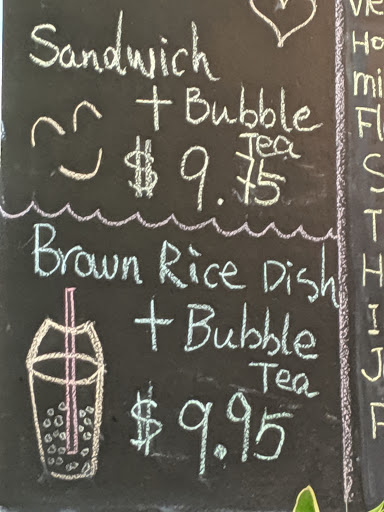 Sandwich
+ Bubble
Tea
$9.75
Brown Rice Dish
+ Bubble
Tea
$9.95
Ho
mi
Fl
S
T
H
I
J